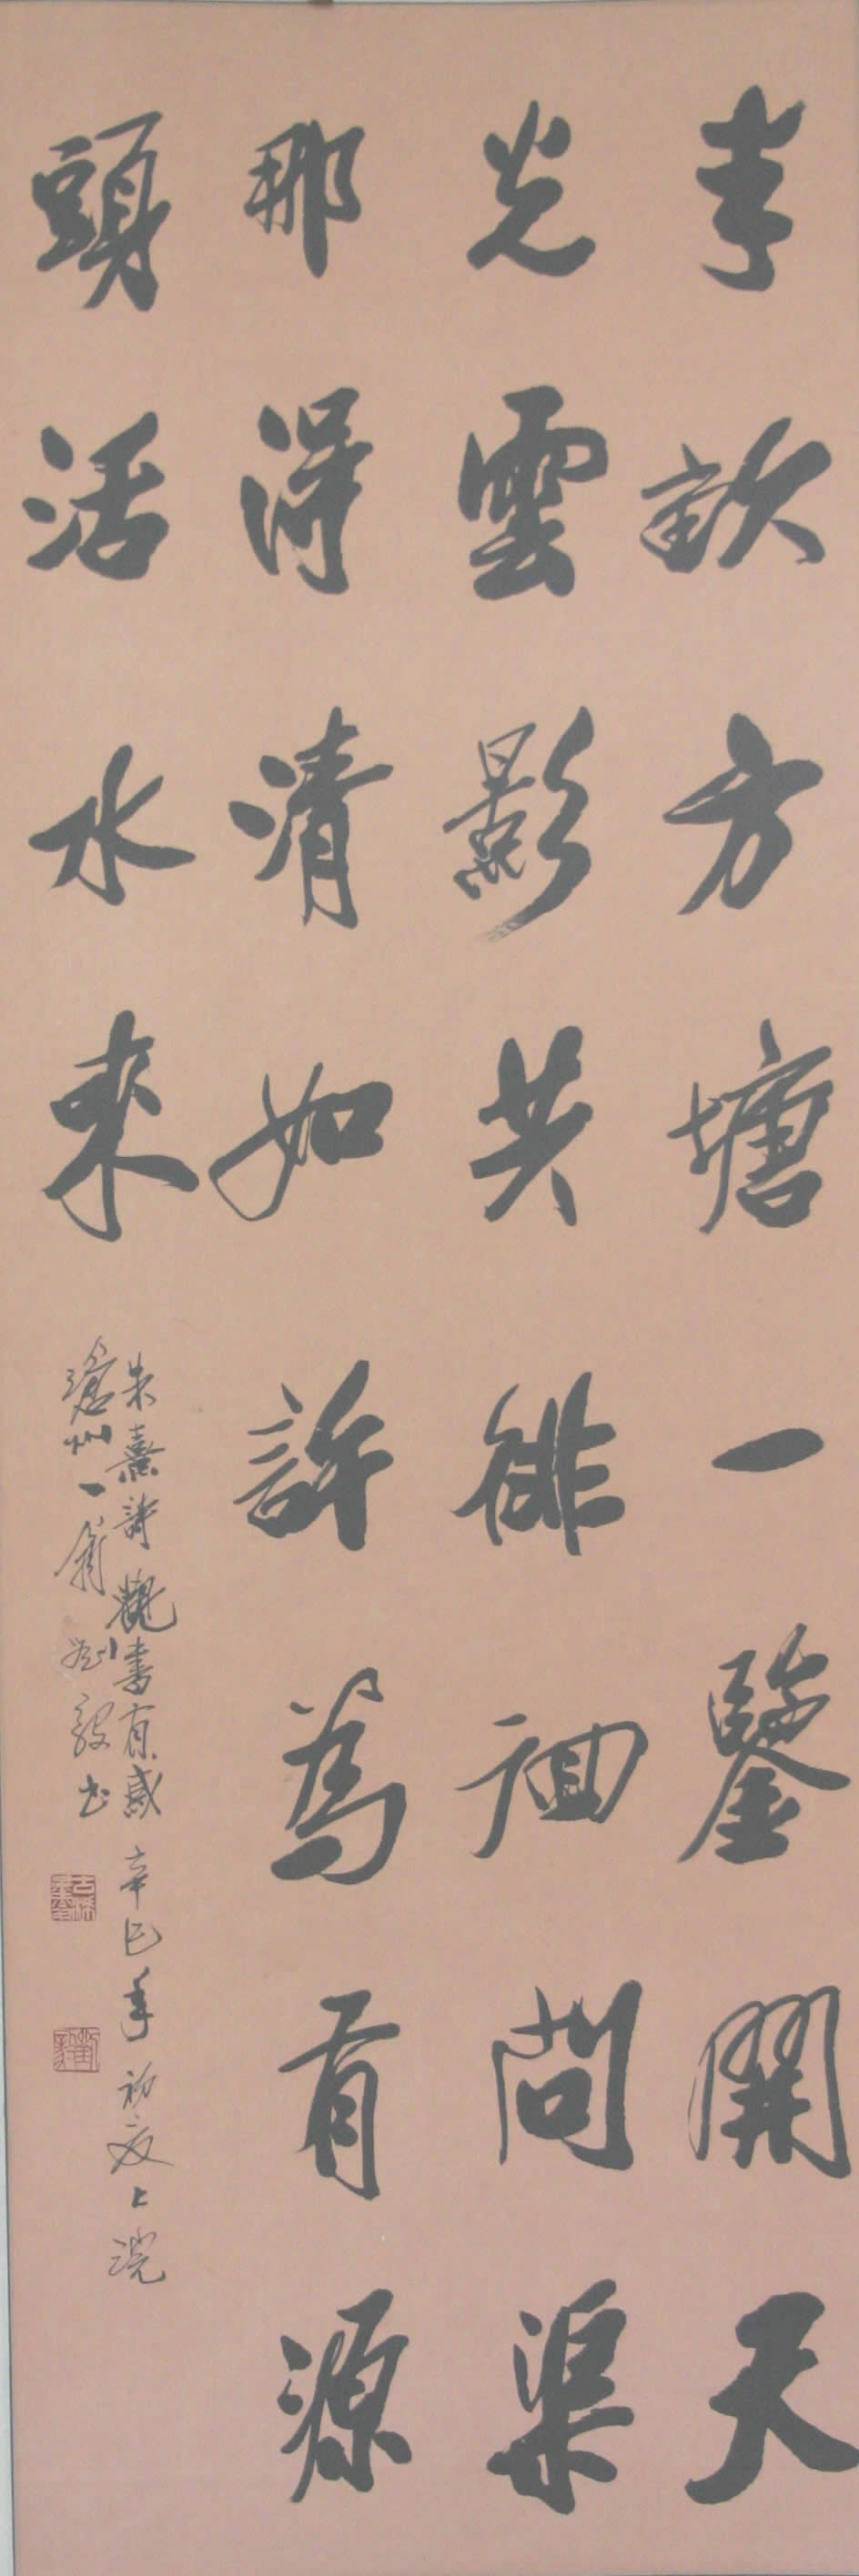 半畝方塘一鑒開天
光雲影共徘徊問渠
那得清如許為有源
頭活水來
朱熹詩觀書有感 辛巳年初夏上浣
滄州一翁劉毅书